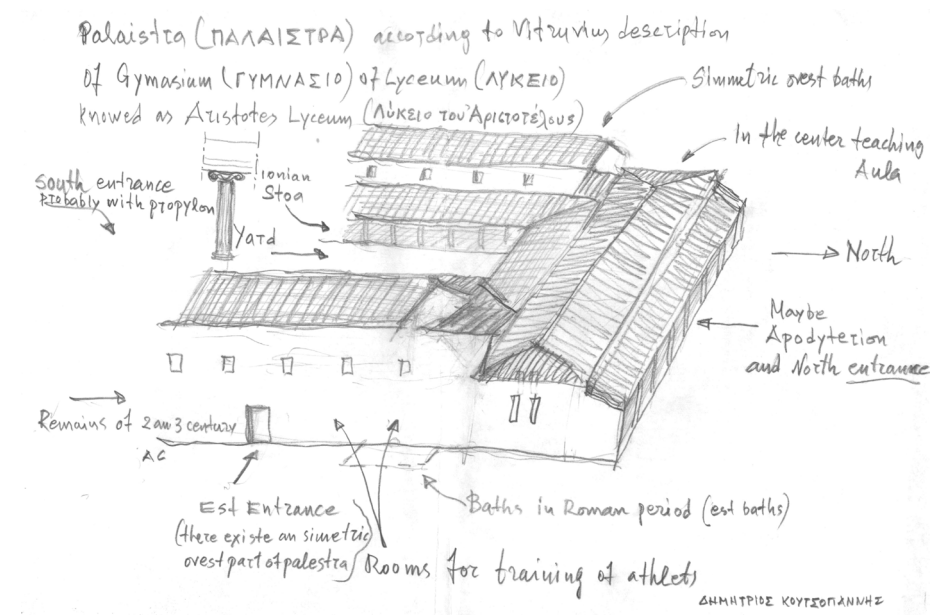 Palaistra (ΠΑΛΑΙΣΤΡΑ) according to Vitruvius description
of Gymasium (ΓΥΜΝΑΣΙΟ) of Lyceum (ΛΥΚΕΙΟ)
knowed as Aristotes Lyceum (Λύκειο του Ἀριστοτέλους)
Simmetric ovest baths
In the center teaching
Aula
South entrance
probably with propylon
ionian
Stoa
Yard
North
Maybe
Apodyterion
and North entrance
Remains of 2 an 3 century
AC
Est Entrance
(there existe an simetric
ovest part of palestra)
Baths in Roman period (est baths)
Rooms for training of athlets
ΔΗΜΗΤΡΙΟΣ ΚΟΥΤΣΟΓΙΑΝΝΗΣ